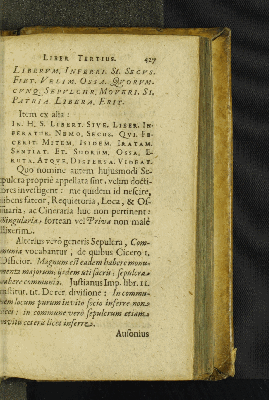 LIBER TERTIUS. 427
LIBERVM. INFERRI. SI. SECVS.
FIET. VELIM. OSSA. QVORVM-
CVNQ. SEPVLCHR. MOVERI. SI.
PATRIA. LIBERA. ERIT.
Item ex alia:
IN. H. S. LIBERT. SIVE. LIBER. IN-
FERATUR. NEMO. SECUS. QVI. FE-
CERIT. MITEM. ISIDEM. IRATAM.
SENTIAT. ET. SUORUM. OSSA. E-
RUTA. ATQVE. DISPERSA. VIDEAT.
Quo nomine autem hujusmodi Se-
pulcra proprie appellata sint, velim docti-
ores investigent: me quidem id nescire,
libens fateor, Requietoria, Loca, & Os-
suaria, ac Cineraria huc non pertinent:
Singularia fortean vel Priva non malè
dixerim.
Alterius verò generis Sepulcra, Com-
munia vocabantur, de quibus Cicero 1.
Officior. Magnum est eadem habere monu-
menta majorum, ijsdem uti sacris: sepulcra
habere communia. Justianus Imp. lib. 11.
Institut. tit. De rer. divisione: In commu-
nem locum purum invito socio inferre non
licet: in commune verò sepulcrum etiam
invitis ceteris licet inferre.
Ausonius